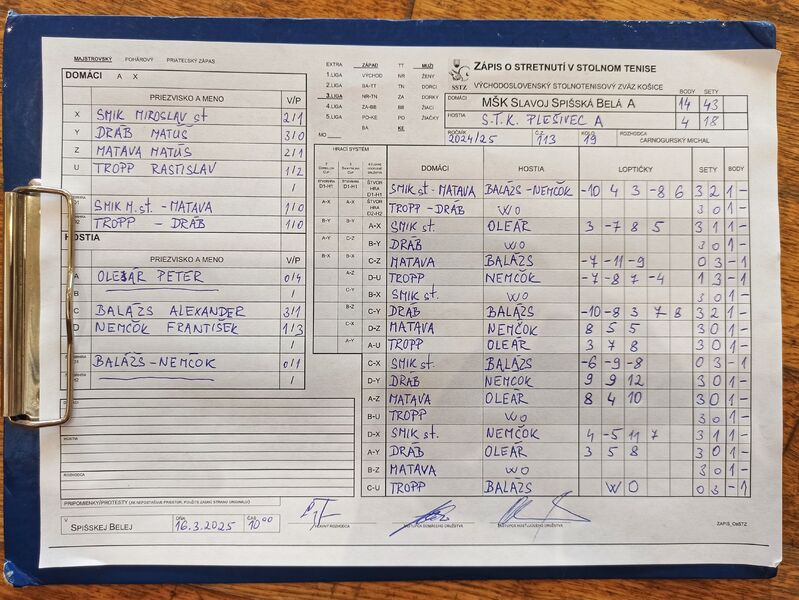 MAJSTROVSKÝ POHÁROVÝ PRIATEĽSKÝ ZÁPAS
DOMÁCI A X
PRIEZVISKO A MENO V/P
X SMIK MIROSLAV st 2/1
Y DRÁB MATÚŠ 3/0
Z MATAVA MATÚŠ 2/1
U TROPP RASTISLAV 1/2
/
SMIK M. st. - MATAVA 1/0
TROPP - DRÁB 1/0
HOSTIA
PRIEZVISKO A MENO V/P
A OLEÁR PETER 0/4
B /
C BALÁZS ALEXANDER 3/1
D NEMČOK FRANTIŠEK 1/3
/
BALÁZS-NEMČOK 0/1
/
DOMÁCI
HOSTIA
ROZHODCA
PRIPOMIENKY/PROTESTY (AK NEPOSTAČUJE PRIESTOR, POUŽITE ZADNÚ STRANU ORIGINÁLU)
V SPIŠSKEJ BELEJ DŇA 16.3.2025 ČAS 10:00
EXTRA ZÁPAD TT MUŽI
1.LIGA VÝCHOD NR ŽENY
2.LIGA BA-TT TN DORCI
3.LIGA NR-TN ZA DORKY
4.LIGA ZA-BB BB ŽIACI
5.LIGA PO-KE PO ŽIAČKY
BA KE
MO
SSTZ
ZÁPIS O STRETNUTÍ V STOLNOM TENISE
VÝCHODOSLOVENSKÝ STOLNOTENISOVÝ ZVÄZ KOŠICE
BODY SETY
DOMÁCI MŠK SLAVOJ SPIŠSKÁ BELÁ A 14 43
HOSTIA S.T.K. PLEŠIVEC A 4 18
ROČNÍK 2024/25 Č.Z. 113 KOLO 19 ROZHODCA ČARNOGURSKÝ MICHAL
HRACÍ SYSTÉM
DOMÁCI HOSTIA LOPTIČKY SETY BODY
ŠTVORHRA D1-H1 SMIK st-MATAVA BALÁZS-NEMČOK -10 4 3 -8 6 3 2 1 -
ŠTVORHRA D2-H2 TROPP-DRÁB WO 3 0 1 -
A-X SMIK st. OLEÁR 3 -7 8 5 3 1 1 -
B-Y DRÁB WO 3 0 1 -
C-Z MATAVA BALÁZS -7 -11 -9 0 3 - 1
D-U TROPP NEMČOK -7 -8 7 -4 1 3 - 1
B-X SMIK st. WO 3 0 1 -
C-Y DRÁB BALÁZS -10 -8 3 7 8 3 2 1 -
D-Z MATAVA NEMČOK 8 5 5 3 0 1 -
A-U TROPP OLEÁR 3 7 8 3 0 1 -
C-X SMIK st. BALÁZS -6 -9 -8 0 3 - 1
D-Y DRÁB NEMČOK 9 9 12 3 0 1 -
A-Z MATAVA OLEÁR 8 4 10 3 0 1 -
B-U TROPP WO 3 0 1 -
D-X SMIK st. NEMČOK 4 -5 11 7 3 1 1 -
A-Y DRÁB OLEÁR 3 5 8 3 0 1 -
B-Z MATAVA WO 3 0 1 -
C-U TROPP BALÁZS WO 0 3 - 1
HLAVNÝ ROZHODCA
ZÁSTUPCA DOMÁCEHO DRUŽSTVA
ZÁSTUPCA HOSŤUJÚCEHO DRUŽSTVA
ZAPIS_OsSTZ